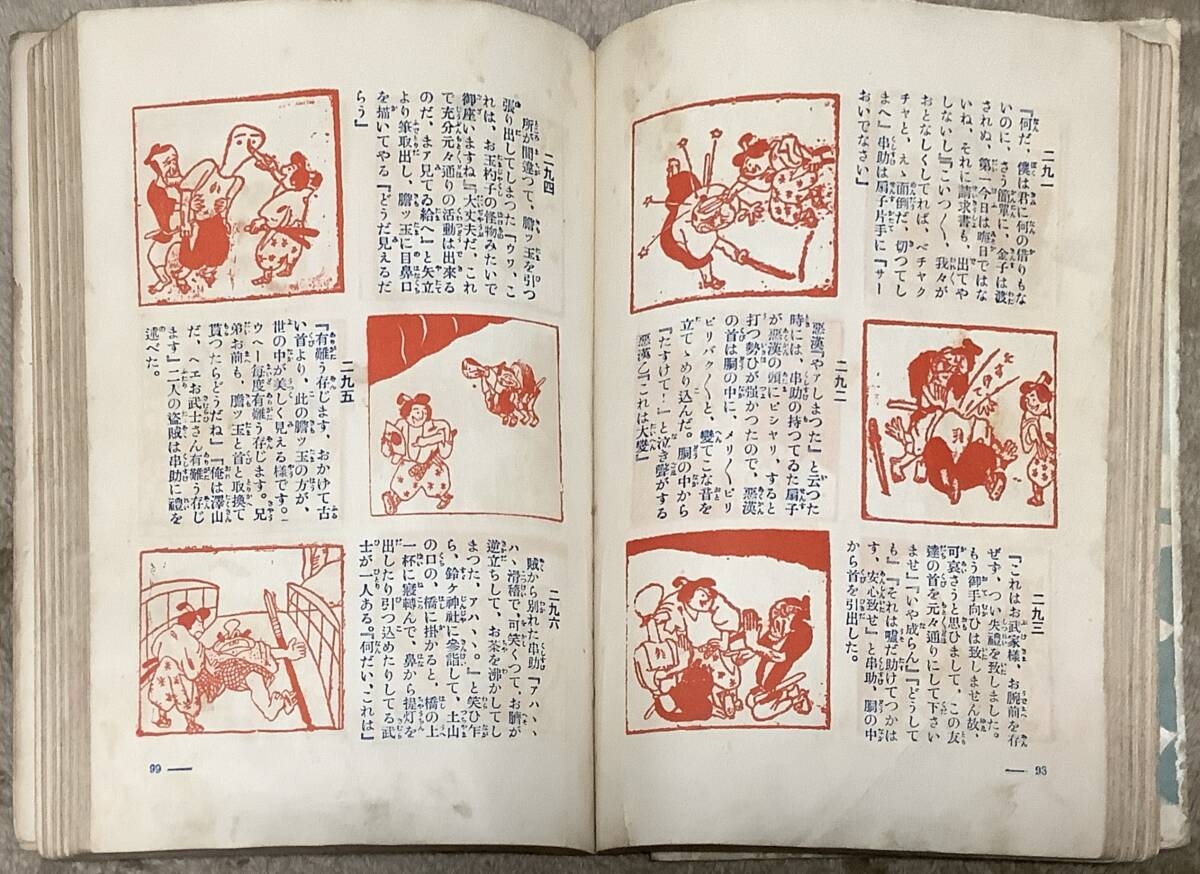 二九一
『何だ、僕は君に何の借りもな
いのに、さう簡單に、金子は渡
されぬ、第一今日は晦日ではな
いね、それに請求書も、出てや
しないし』『こいつ〳〵、我々が
おとなしくしてれば、ベチャク
チャと、えゝ面倒だ、切つてし
まへ』串助は扇子片手に『サー
おいでなさい』
二九二
惡漢『やァしまつた』と云つた
時には、串助の持つてるた扇子
が惡漢の頭にピシャリ、すると
打つ勢ひが强かつたので、惡漢
の首は胴の中に、メリ〳〵ピリ
ピリパク〳〵と、變てこな音を
立てゝめり込んだ。胴の中から
『たすけて！』と泣き聲がする
惡漢乙『これは大變』
二九三
『これはお武家様、お腕前を存
ぜず、つい失禮を致しました。
もう御手向ひは致しません故、
可哀さうと思ひまして、この友
達の首を元々通りにして下さい
ませ』『いや成らん』『どうして
も』『それは嘘だ助けてつかは
す、安心致せ』と串助、胴の中
から首を引出した。
93
二九四
所が間違つて、膽ッ玉を引つ
張り出してしまつた『ウワ、こ
れは、お玉杓子の怪物みたいで
御座いますね』『大丈夫だ、これ
で充分元々通りの活動は出來る
のだ、まァ見てる給へ』と矢立
より筆取出し、膽ッ玉に目鼻口
を描いてやる『どうだ見えるだ
らう』
二九五
『有難う存じます、おかけて古
い首より、此の膽ッ玉の方が、
世の中が美しく見える様です。
ウヘー毎度有難う存じます。兄
弟お前も、膽ッ玉と首と取換て
貰つたらどうだね』『俺は澤山
だ、ヘエお武士さん有難う存じ
ます』二人の盗賊は串助に禮を
述べた。
二九六
賊から別れた串助『アハヽヽ
ハ、滑稽で、可笑くつて、お臍が
逆立ちして、お茶を沸かしてし
まつた、アハヽヽ。』と笑ひ乍
ら、鈴ヶ神社に參詣して、土山
の口の、橋に掛かると、橋の上
一杯に寢轉んで、鼻から提灯を
出したり引つ込めたりしてる武
士が一人ある。『何だい、これは』
99